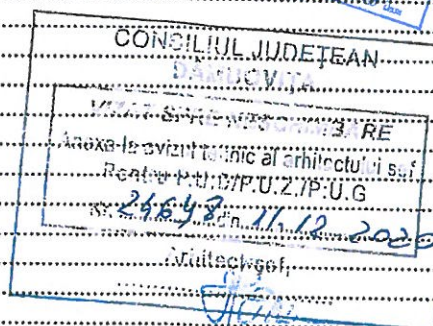 CONCILIUL JUDEȚEAN
DÂMBOVIȚA
VIZAT SPRE NESCHIMBARE
Anexa la avizul tehnic al arhitectului șef
Pentru P.U.D/P.U.Z./P.U.G
Nr. 24648 din 11.12.2020
Arhitect șef,